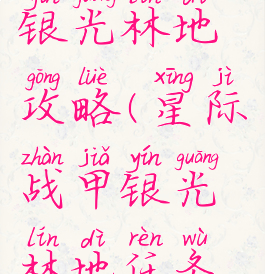 yín guāng lín dì
银光林地
gōng lüè xīng jì
攻略(星际
zhàn jiǎ yín guāng
战甲银光
lín dì rèn wù
林地任务